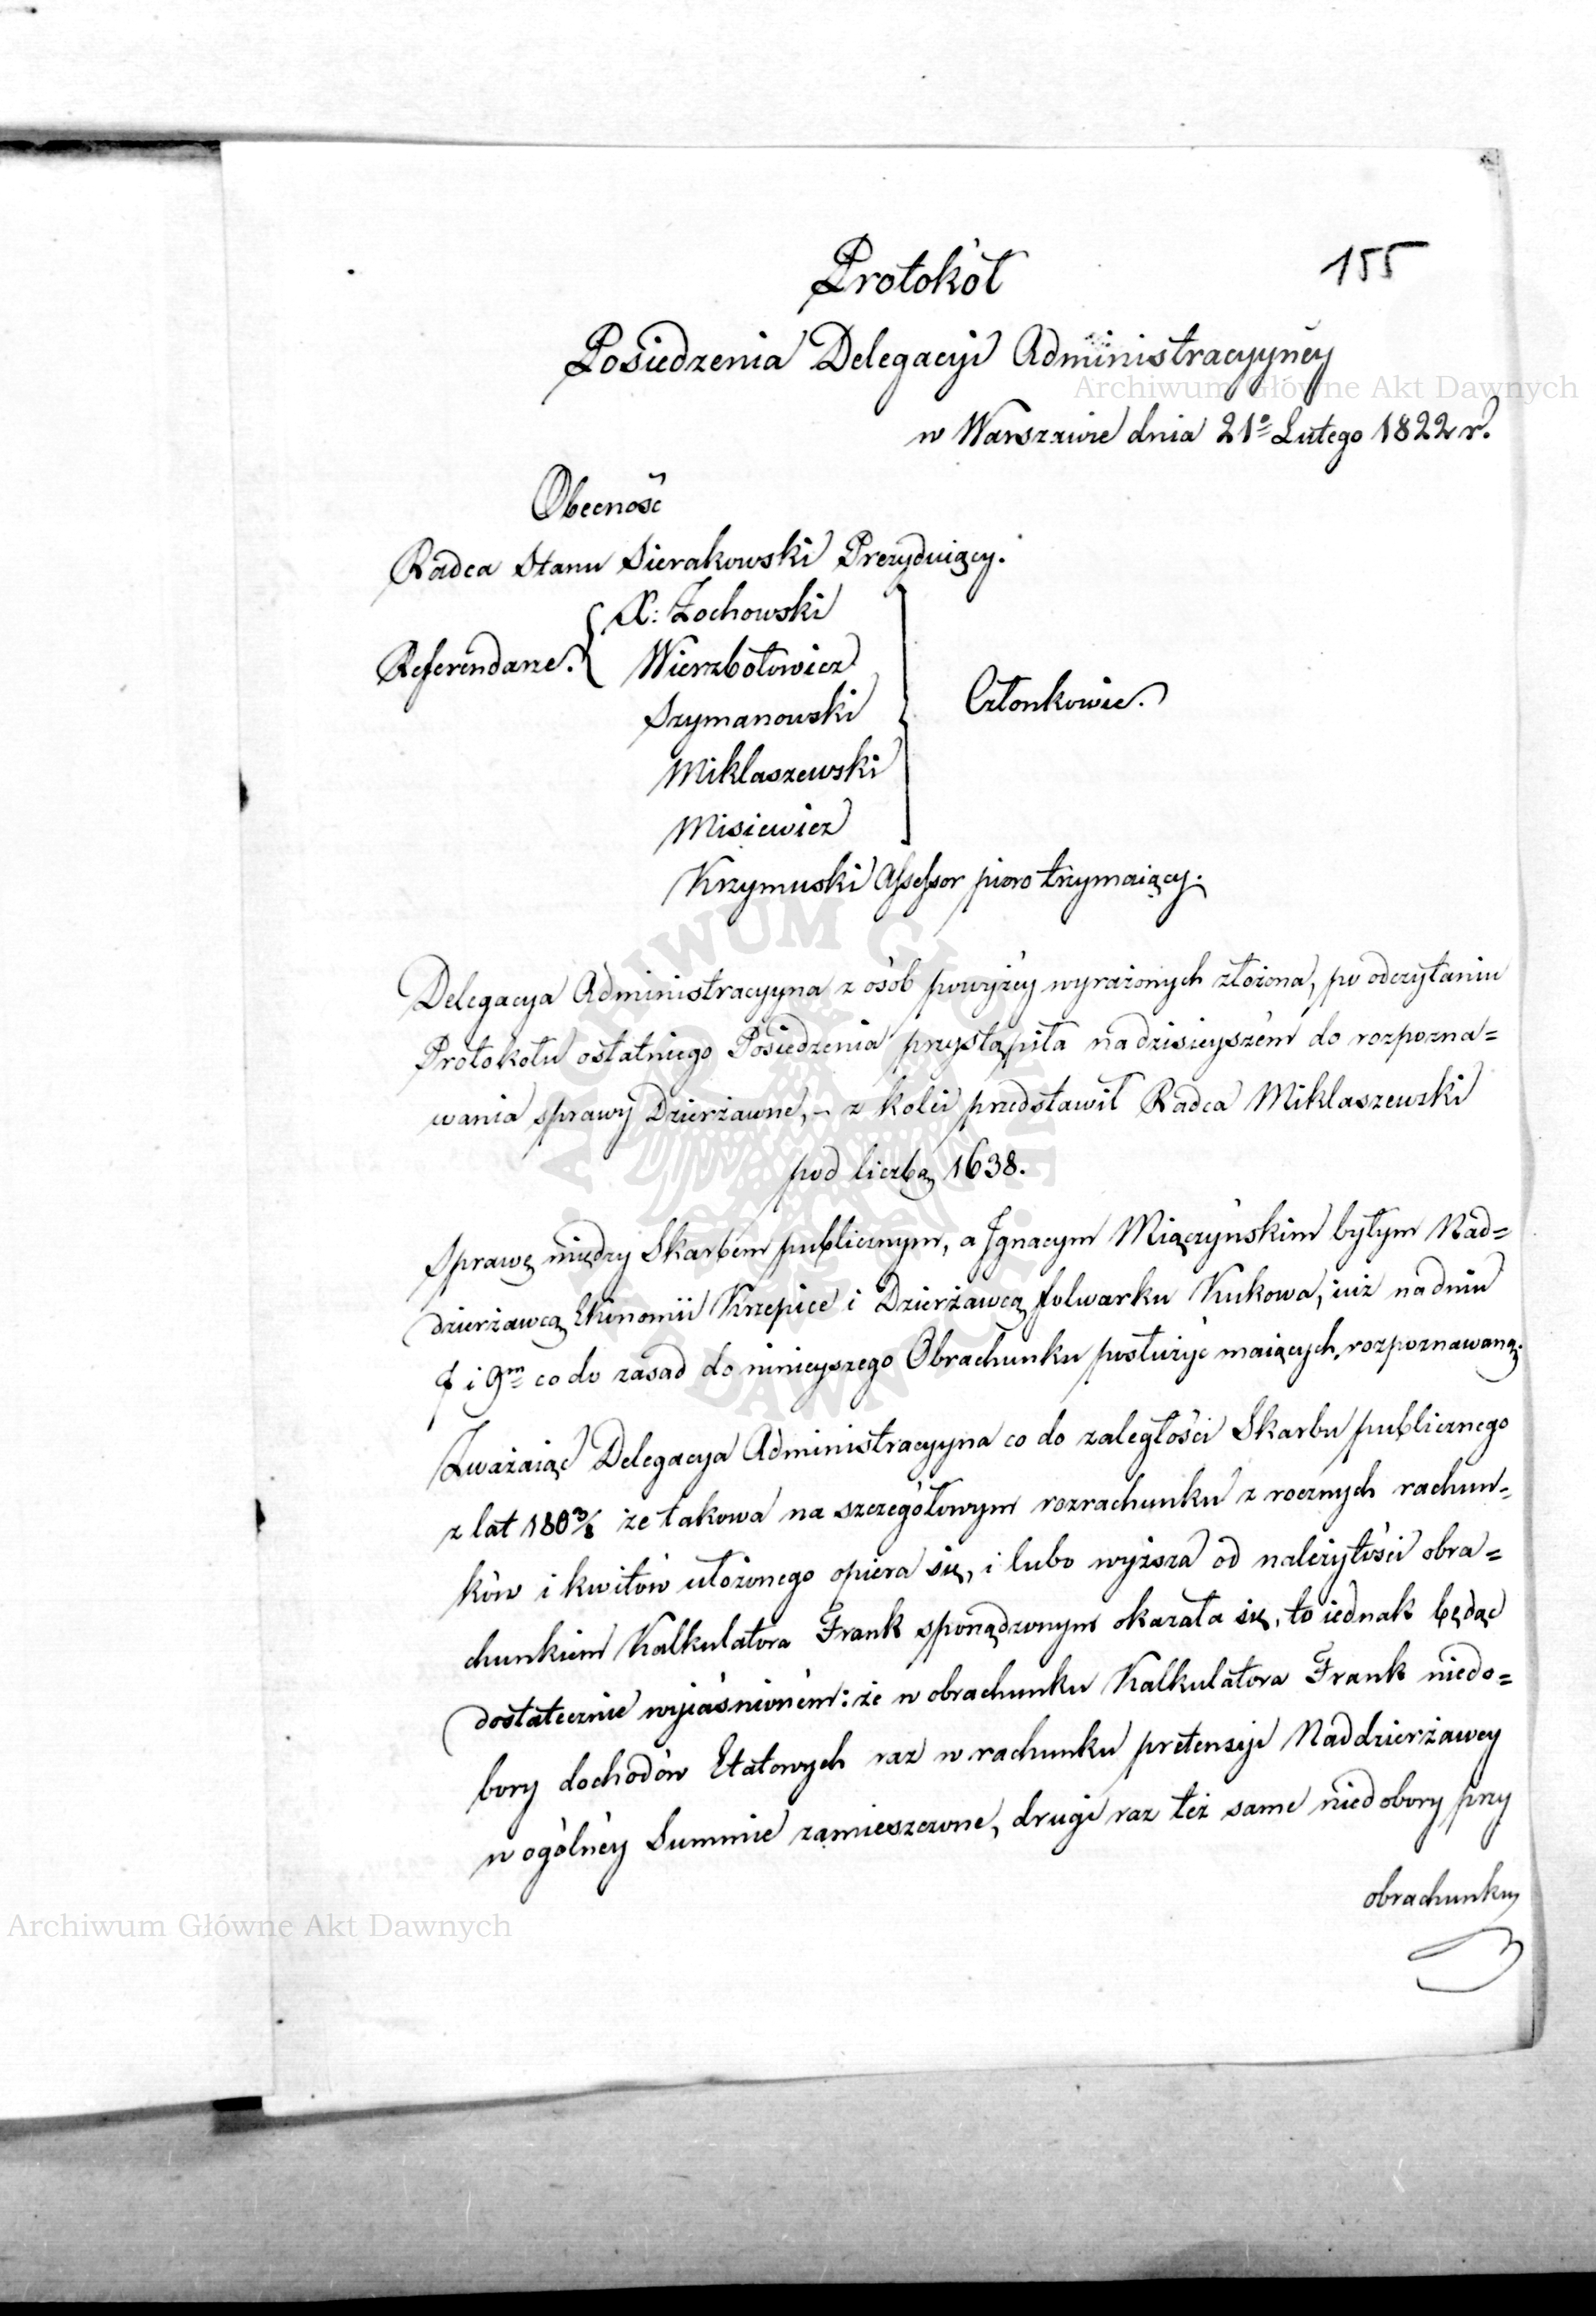 155
Protokół
Posiedzenia Delegacyi Administracyyney
w Warszawie dnia 21º Lutego 1822 r.
Obecność
Radca Stanu Sierakowski Prezyduiący.
Referendarze. X: Żochowski
Wierzbołowicz
Szymanowski
Członkowie.
Miklaszewski
Misiewicz
Krzymuski Assessor pioro trzymaiący.
Delegacya Administracyyna z osób powyżey wyrażonych złożona, po odczytaniu
Protokołu ostatniego Posiedzenia przystąpiła na dzisieyszém do rozpozna=
wania sprawy Dzierżawne, - z kolei przedstawił Radca Miklaszewski
pod liczbą 1638.
Sprawę między Skarbem publicznym, a Ignacym Miączyńskim byłym Nad=
dzierżawcą Ekonomii Krzepice i Dzierżawcą folwarku Kukowa, iuż na dniu
i 9m co do zasad do ninieyszego Obrachunku posłużyć maiących, rozpoznawaną.
Zważaiąc Delegacya Administracyyna co do zaległości Skarbu publicznego
z lat że takowa na szczegółowym rozrachunku z rocznych rachun=
ków i kwitów ułożonego opiera się, i lubo wyższa od należytości obra=
chunkiem Kalkulatora Frank sporządzonym okazała się, to iednak będąc
dostatecznie wyiaśnioném: że w obrachunku Kalkulatora Frank niedo=
bory dochodów Etatowych raz w rachunku pretensyi Naddzierżawcy
w ogólney Summie zamieszczone, drugi raz też same niedobory przy
obrachunku
Archiwum Główne Akt Dawnych
Archiwum Główne Akt Dawnych
ARCHIWUM GŁÓWNE AKT DAWNYCH